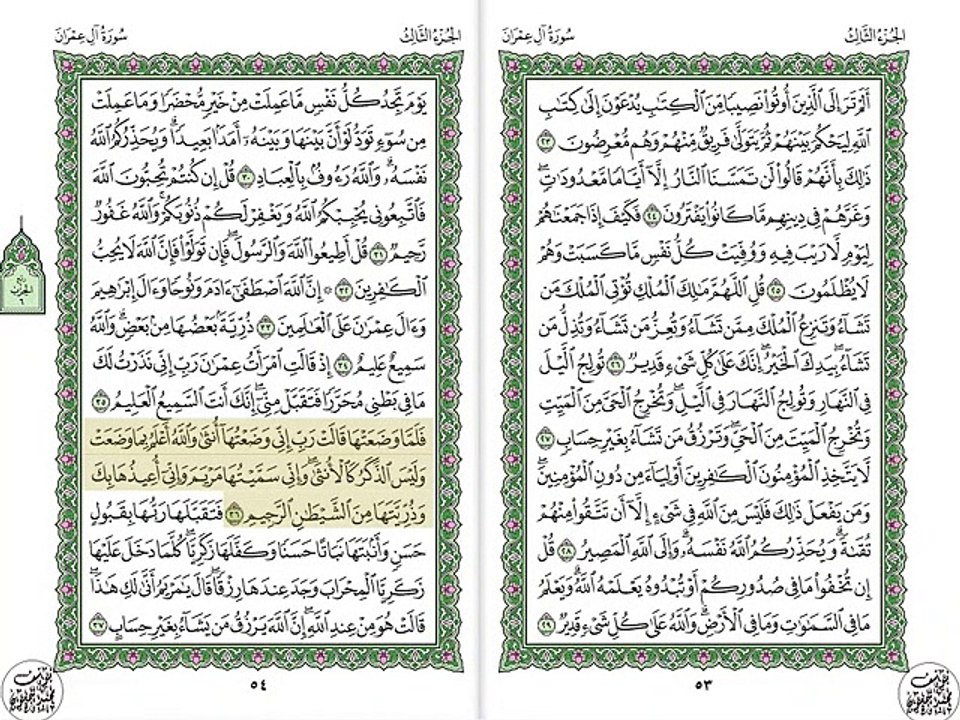 الجزء الثالث
سورة آل عمران
أَلَمْ تَرَ إِلَى ٱلَّذِينَ أُوتُوا۟ نَصِيبًا مِّنَ ٱلْكِتَٰبِ يُدْعَوْنَ إِلَىٰ كِتَٰبِ
ٱللَّهِ لِيَحْكُمَ بَيْنَهُمْ ثُمَّ يَتَوَلَّىٰ فَرِيقٌ مِّنْهُمْ وَهُم مُّعْرِضُونَ ٢٣
ذَٰلِكَ بِأَنَّهُمْ قَالُوا۟ لَن تَمَسَّنَا ٱلنَّارُ إِلَّآ أَيَّامًا مَّعْدُودَٰتٍ ۖ
وَغَرَّهُمْ فِى دِينِهِم مَّا كَانُوا۟ يَفْتَرُونَ ٢٤ فَكَيْفَ إِذَا جَمَعْنَٰهُمْ
لِيَوْمٍ لَّا رَيْبَ فِيهِ وَوُفِّيَتْ كُلُّ نَفْسٍ مَّا كَسَبَتْ وَهُمْ
لَا يُظْلَمُونَ ٢٥ قُلِ ٱللَّهُمَّ مَٰلِكَ ٱلْمُلْكِ تُؤْتِى ٱلْمُلْكَ مَن
تَشَآءُ وَتَنزِعُ ٱلْمُلْكَ مِمَّن تَشَآءُ وَتُعِزُّ مَن تَشَآءُ وَتُذِلُّ مَن
تَشَآءُ ۖ بِيَدِكَ ٱلْخَيْرُ ۖ إِنَّكَ عَلَىٰ كُلِّ شَىْءٍ قَدِيرٌ ٢٦ تُولِجُ ٱلَّيْلَ
فِى ٱلنَّهَارِ وَتُولِجُ ٱلنَّهَارَ فِى ٱلَّيْلِ ۖ وَتُخْرِجُ ٱلْحَىَّ مِنَ ٱلْمَيِّتِ
وَتُخْرِجُ ٱلْمَيِّتَ مِنَ ٱلْحَىِّ ۖ وَتَرْزُقُ مَن تَشَآءُ بِغَيْرِ حِسَابٍ ٢٧
لَّا يَتَّخِذِ ٱلْمُؤْمِنُونَ ٱلْكَٰفِرِينَ أَوْلِيَآءَ مِن دُونِ ٱلْمُؤْمِنِينَ ۖ
وَمَن يَفْعَلْ ذَٰلِكَ فَلَيْسَ مِنَ ٱللَّهِ فِى شَىْءٍ إِلَّآ أَن تَتَّقُوا۟ مِنْهُمْ
تُقَىٰةً ۗ وَيُحَذِّرُكُمُ ٱللَّهُ نَفْسَهُۥ ۗ وَإِلَى ٱللَّهِ ٱلْمَصِيرُ ٢٨ قُلْ
إِن تُخْفُوا۟ مَا فِى صُدُورِكُمْ أَوْ تُبْدُوهُ يَعْلَمْهُ ٱللَّهُ ۗ وَيَعْلَمُ
مَا فِى ٱلسَّمَٰوَٰتِ وَمَا فِى ٱلْأَرْضِ ۗ وَٱللَّهُ عَلَىٰ كُلِّ شَىْءٍ قَدِيرٌ ٢٩
٥٣
الجزء الثالث
سورة آل عمران
يَوْمَ تَجِدُ كُلُّ نَفْسٍ مَّا عَمِلَتْ مِنْ خَيْرٍ مُّحْضَرًا وَمَا عَمِلَتْ
مِن سُوٓءٍ تَوَدُّ لَوْ أَنَّ بَيْنَهَا وَبَيْنَهُۥٓ أَمَدًۢا بَعِيدًا ۗ وَيُحَذِّرُكُمُ ٱللَّهُ
نَفْسَهُۥ ۗ وَٱللَّهُ رَءُوفٌۢ بِٱلْعِبَادِ ٣٠ قُلْ إِن كُنتُمْ تُحِبُّونَ ٱللَّهَ
فَٱتَّبِعُونِى يُحْبِبْكُمُ ٱللَّهُ وَيَغْفِرْ لَكُمْ ذُنُوبَكُمْ ۗ وَٱللَّهُ غَفُورٌ
رَّحِيمٌ ٣١ قُلْ أَطِيعُوا۟ ٱللَّهَ وَٱلرَّسُولَ ۖ فَإِن تَوَلَّوْا۟ فَإِنَّ ٱللَّهَ لَا يُحِبُّ
ٱلْكَٰفِرِينَ ٣٢ ۞ إِنَّ ٱللَّهَ ٱصْطَفَىٰٓ ءَادَمَ وَنُوحًا وَءَالَ إِبْرَٰهِيمَ
وَءَالَ عِمْرَٰنَ عَلَى ٱلْعَٰلَمِينَ ٣٣ ذُرِّيَّةًۢ بَعْضُهَا مِنۢ بَعْضٍ ۗ وَٱللَّهُ
سَمِيعٌ عَلِيمٌ ٣٤ إِذْ قَالَتِ ٱمْرَأَتُ عِمْرَٰنَ رَبِّ إِنِّى نَذَرْتُ لَكَ
مَا فِى بَطْنِى مُحَرَّرًا فَتَقَبَّلْ مِنِّىٓ ۖ إِنَّكَ أَنتَ ٱلسَّمِيعُ ٱلْعَلِيمُ ٣٥
فَلَمَّا وَضَعَتْهَا قَالَتْ رَبِّ إِنِّى وَضَعْتُهَآ أُنثَىٰ وَٱللَّهُ أَعْلَمُ بِمَا وَضَعَتْ
وَلَيْسَ ٱلذَّكَرُ كَٱلْأُنثَىٰ ۖ وَإِنِّى سَمَّيْتُهَا مَرْيَمَ وَإِنِّىٓ أُعِيذُهَا بِكَ
وَذُرِّيَّتَهَا مِنَ ٱلشَّيْطَٰنِ ٱلرَّجِيمِ ٣٦ فَتَقَبَّلَهَا رَبُّهَا بِقَبُولٍ
حَسَنٍ وَأَنۢبَتَهَا نَبَاتًا حَسَنًا وَكَفَّلَهَا زَكَرِيَّا ۖ كُلَّمَا دَخَلَ عَلَيْهَا
زَكَرِيَّا ٱلْمِحْرَابَ وَجَدَ عِندَهَا رِزْقًا ۖ قَالَ يَٰمَرْيَمُ أَنَّىٰ لَكِ هَٰذَا ۖ
قَالَتْ هُوَ مِنْ عِندِ ٱللَّهِ ۖ إِنَّ ٱللَّهَ يَرْزُقُ مَن يَشَآءُ بِغَيْرِ حِسَابٍ ٣٧
٥٤
الحزب
٦